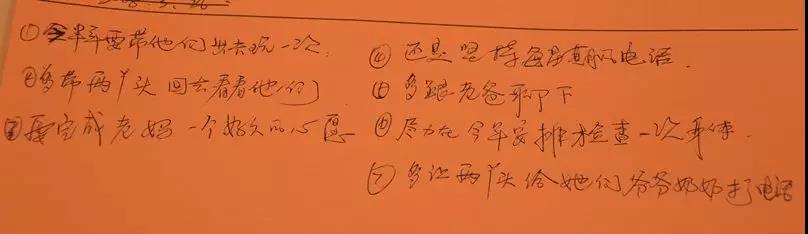 ①半年要带他们出去玩一次.
②多带两丫头回去看看他们
③要完成老妈一个好久的心愿
④还是坚持每日打电话.
⑤多跟老爸聊下
⑥尽力在今年安排检查一次身体.
⑦多让两丫头给她们爷爷奶奶打电话